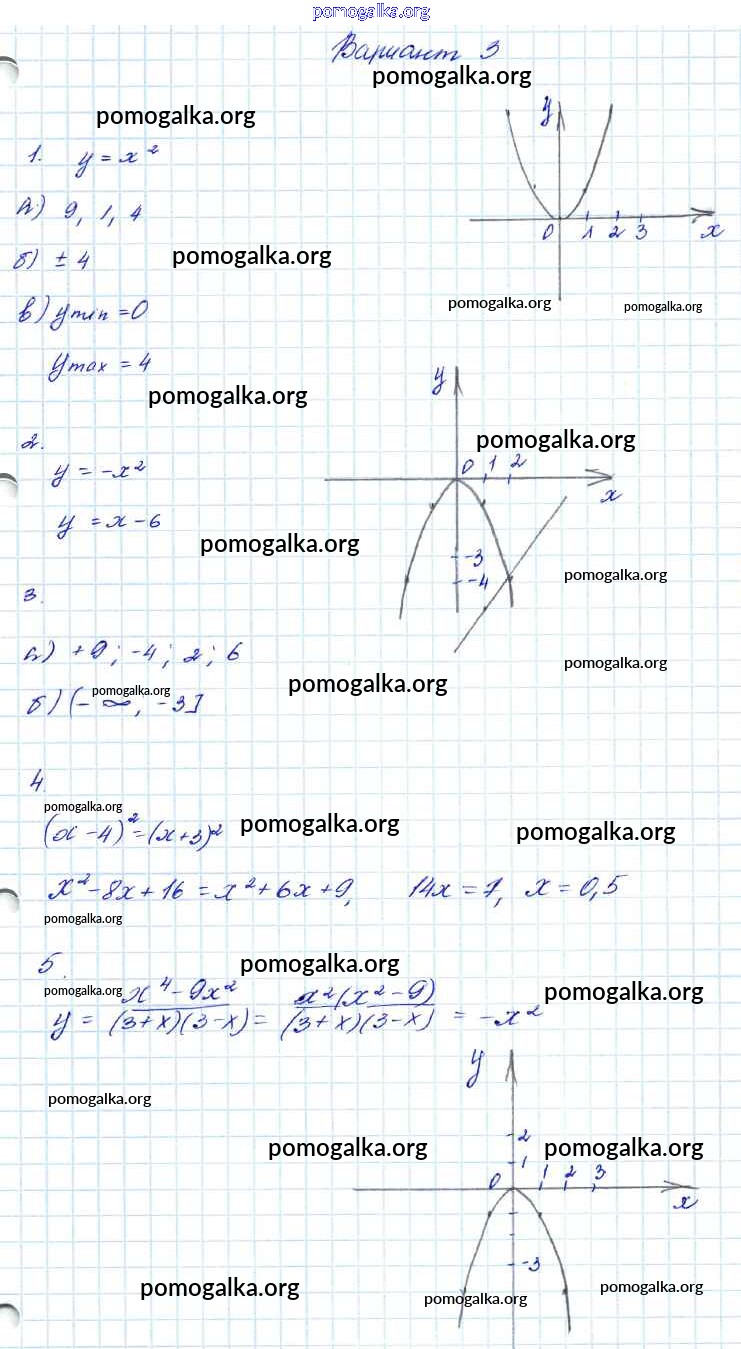 pomogalka.org
Вариант 3
pomogalka.org
pomogalka.org
y
1. y = x²
а) 9, 1, 4
0 1 2 3 x
б) ± 4
pomogalka.org
в) y min = 0
pomogalka.org
pomogalka.org
y max = 4
y
pomogalka.org
2.
pomogalka.org
y = -x²
0 1 2
x
y = x - 6
pomogalka.org
-3
-4
pomogalka.org
3.
а) +9; -4; 2; 6
pomogalka.org
pomogalka.org
pomogalka.org
б) (-∞, -3]
4.
pomogalka.org
(x - 4)² = (x + 3)²
pomogalka.org
pomogalka.org
x² - 8x + 16 = x² + 6x + 9, 14x = 7, x = 0,5
pomogalka.org
5.
pomogalka.org
pomogalka.org
pomogalka.org
x⁴ - 9x² x²(x² - 9)
y = (3+x)(3-x) = (3+x)(3-x) = -x²
y
pomogalka.org
pomogalka.org
pomogalka.org
2
1
0 1 2 3
x
-3
pomogalka.org
pomogalka.org
pomogalka.org